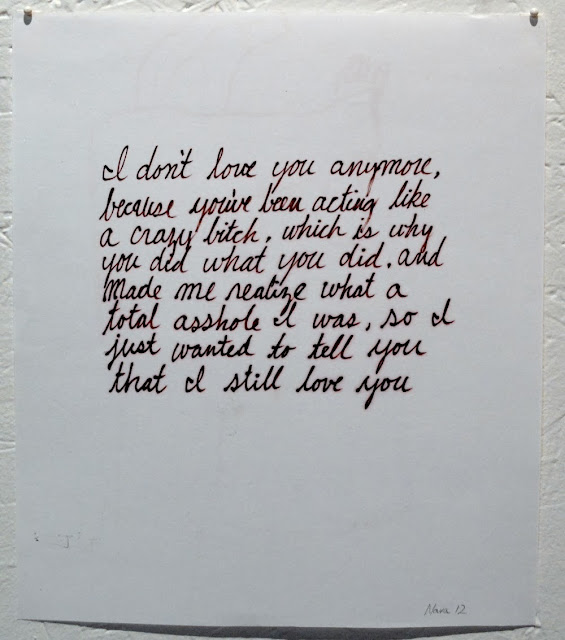 I don't love you anymore,
because you've been acting like
a crazy bitch, which is why
you did what you did, and
made me realize what a
total asshole I was, so I
just wanted to tell you
that I still love you